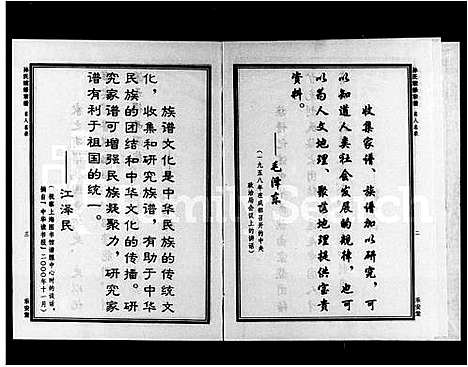 收集家谱、族谱加以研究,可
以知道人类社会发展的规律,也可
以为人文地理、聚落地理提供宝贵
资料。
——毛泽东
(一九五八年在成都召开的中央
政治局会议上的讲话)
二
乐安堂
族谱文化是中华民族的传统文
化,收集和研究族谱,有助于中华
民族的团结和中华文化的传播。研
究家谱可增强民族凝聚力,研究家
谱有利于祖国的统一。
——江泽民
(视察上海图书馆谱牒中心时的谈话,
摘自《中华读书报》二〇〇〇年十一月)
三
乐安堂